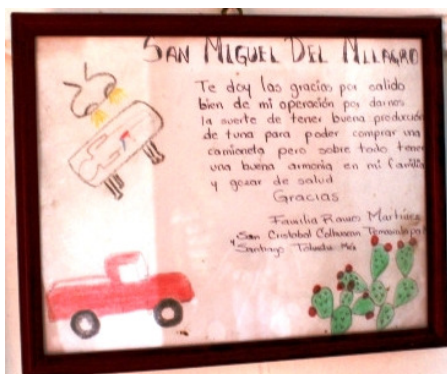 SAN MIGUEL DEL MILAGRO
Te doy las gracias por salido
bien de mi operación por darnos
la suerte de tener buena producción
de tuna para poder comprar una
camioneta pero sobre todo tener
una buena armonia en mi familia
y gozar de salud
Gracias
Familia Ramos Martinez
San Cristobal Colhuacan
y Santiago